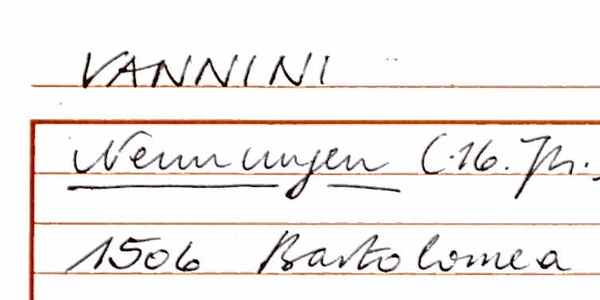 VANNINI
Nennungen (16. Jh.
1506 Bartolomea